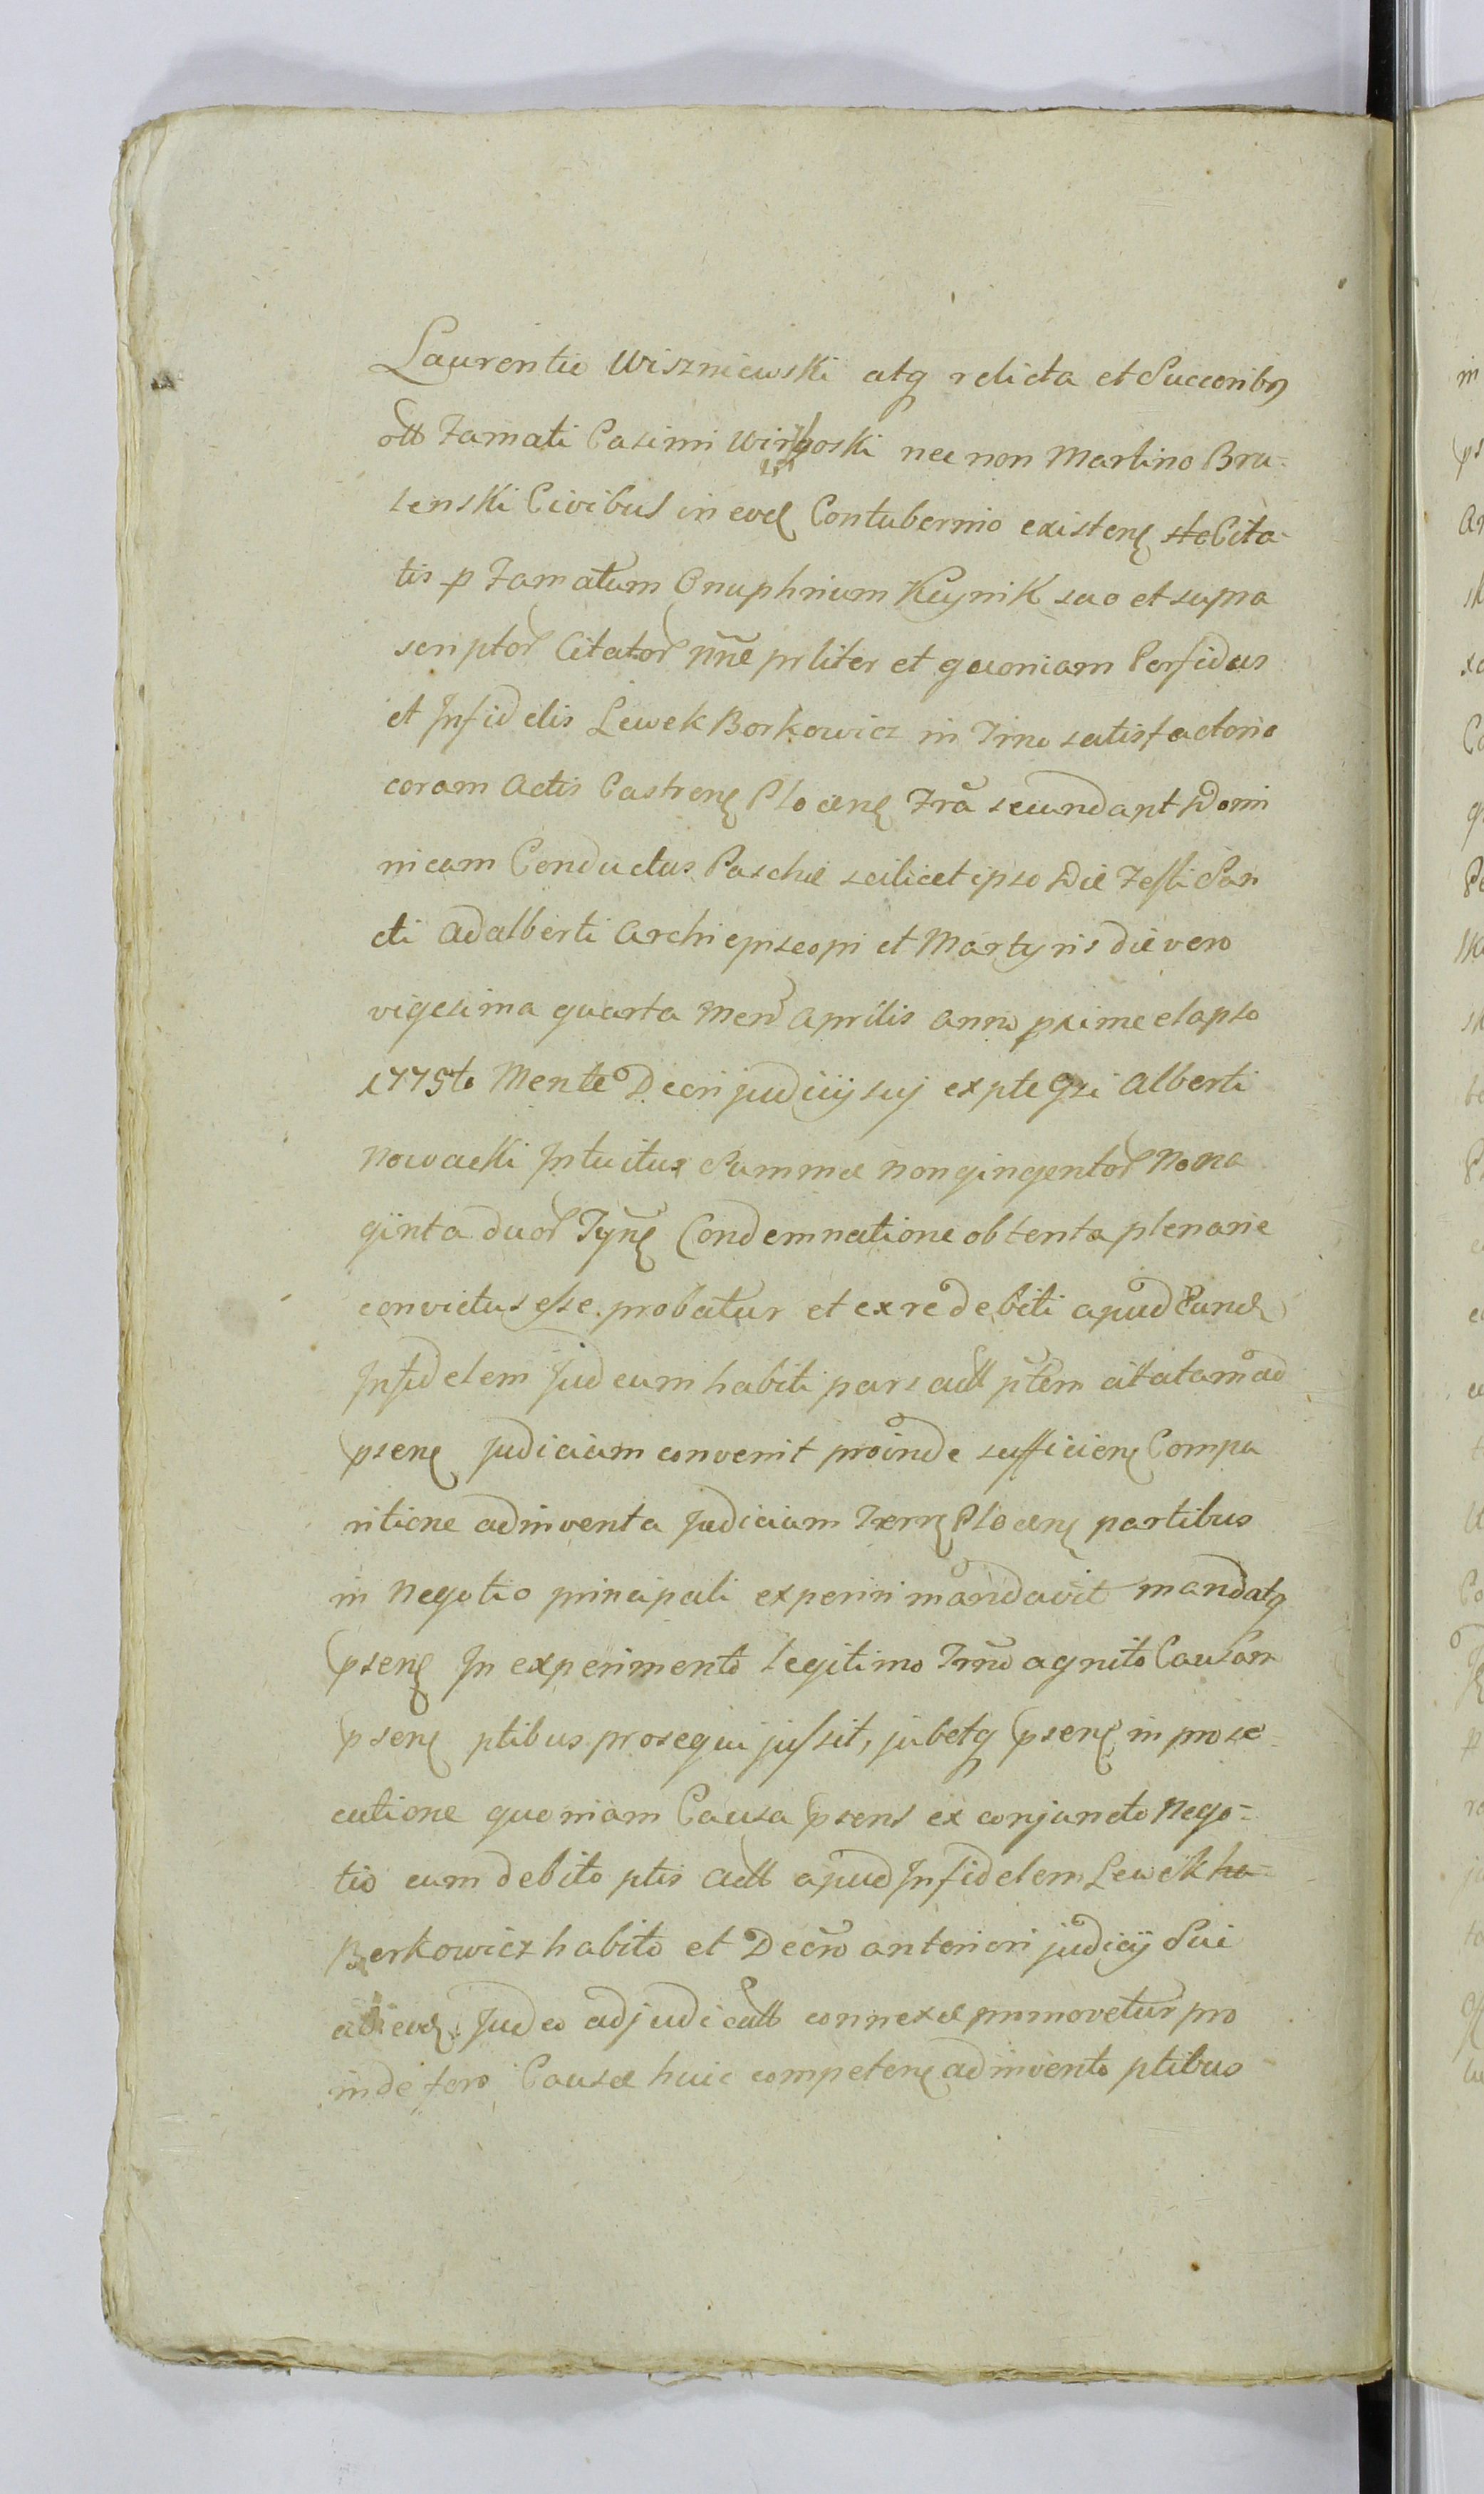 Laurentio Wiszniewski atq relicta et Succoribq
olt Famati Casimi Wirzboski nec non Martino Bru-
senski Civibus in eod Contubernio existen ste Cita-
tis p Famatum Onuphrium Keynik suo et supra
scriptor Citator nne prliter et quoniam Perfidus
et Infidelis Lewek Borkowicz in Trno satisfactorio
coram Actis Castren Plocen Fra secunda pt Domi
nicam Conductus Paschæ scilicet ipso Die Festi San
cti Adalberti Archiepiscopi et Martyris die vero
vigesima quarta Mens Aprilis anno pxime elapso
1775to Mente Decri judicij suj ex pte Gsi Alberti
Nowacki Intuitu Summæ nongingentor Nona
ginta duor Tyn Condemnatione obtenta plenarie
convictus esse probatur et ex re debiti apud Eund
Infidelem Judeum habiti pars act ptem citatam ad
psens Judicium convenit proinde sufficien Compa
ritione adinventa Judicium Terr Plocen partibus
in negotio principali experiri mandavit mandatq
psens In experimento legitimo Trno agnito Causam
psens ptibus prosequi jussit, jubetq psens in prose-
cutione quoniam Causa psens ex conjuncto Nego-
tio cum debito ptis act apud Infidelem Lewek ha-
Berkowicz habito et Decro anteriori judicij Sui
ab eod Judeo adjudicatt connexæ promovetur pro
inde foro Causæ huic competen adinvento ptibus